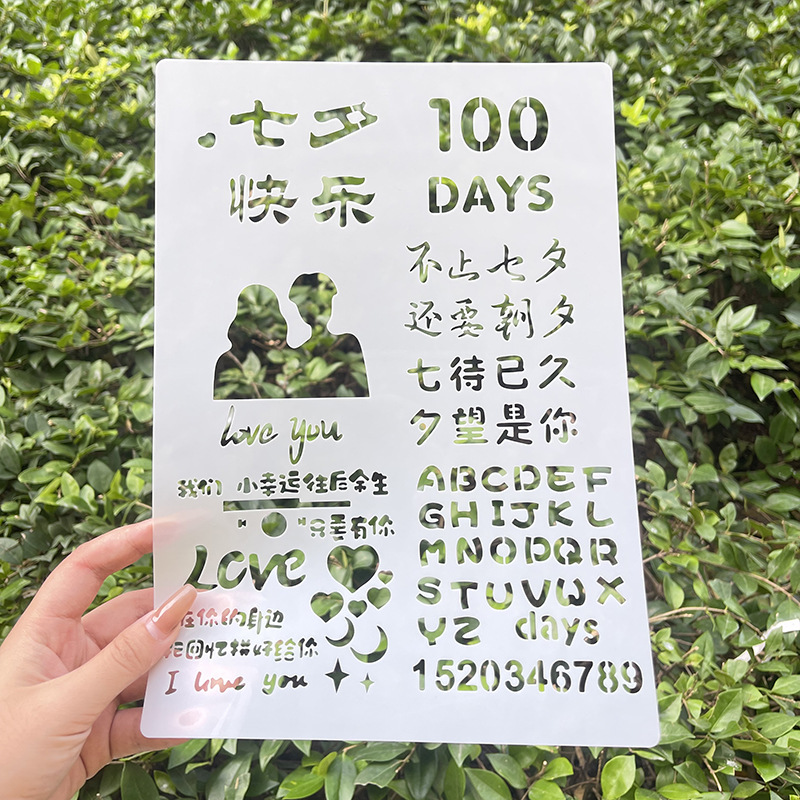 七夕
快乐
love you
我们 小幸运往后余生
只要有你
Love
在你的身边
把回忆拼好给你
I love you
100
DAYS
不止七夕
还要朝夕
七待已久
夕望是你
ABCDEF
GHIJKL
MNOPQR
STUVWX
YZ days
1520346789